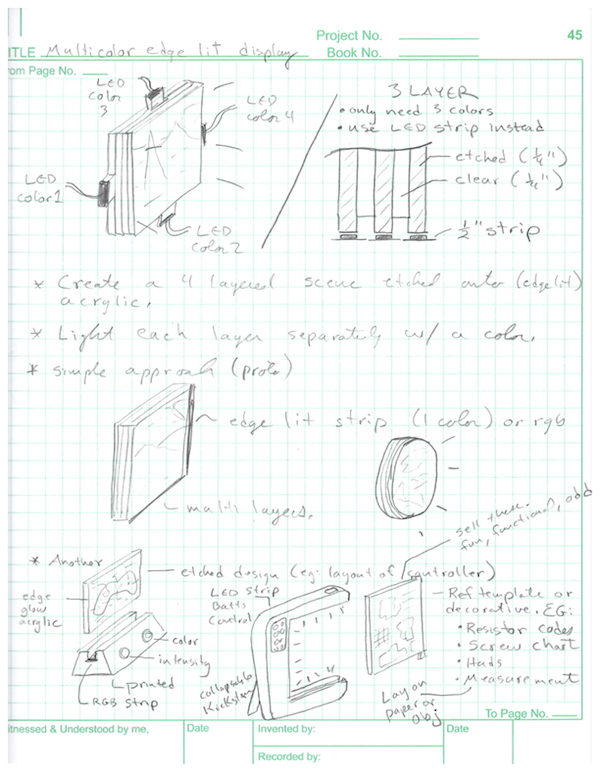 Project No.
45
TITLE Multicolor edge lit display
Book No.
From Page No.
LED
color
3
LED
color 4
LED
color 1
LED
color 2
3 LAYER
• only need 3 colors
• use LED strip instead
etched (1/4")
clear (1/4")
1/2" strip
* Create a 4 layered scene etched onto (edge lit)
acrylic.
* Light each layer separately w/ a color.
* Simple approach (proto)
edge lit strip (1 color) or rgb
multi layers.
sell these.
fun, functional, odd
* Another
etched design (eg: layout of controller)
edge
glow
acrylic
color
intensity
printed
RGB strip
LED strip
Batts
Control
collapsable
Kickstand
Ref template or
decorative. EG:
• Resistor codes
• Screw chart
• Measurement
Lay on
paper or
obj
To Page No.
Witnessed & Understood by me,
Date
Invented by:
Date
Recorded by: